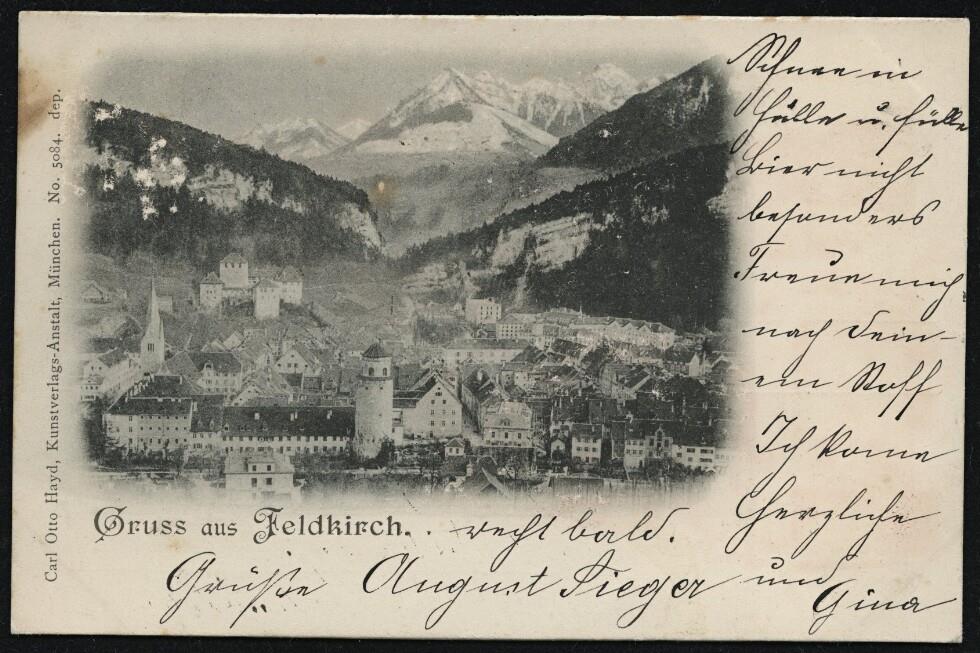 Carl Otto Hayd, Kunstverlags-Anstalt, München. No. 5084. dep.
Schnee in
Hülle u. Fülle
Bier nicht
besonders
Freue mich
nach Dein-
em Stoff
Ich kome
Gruss aus Feldkirch.. recht bald.
Herzliche
Grüße August Sieger und
Gina